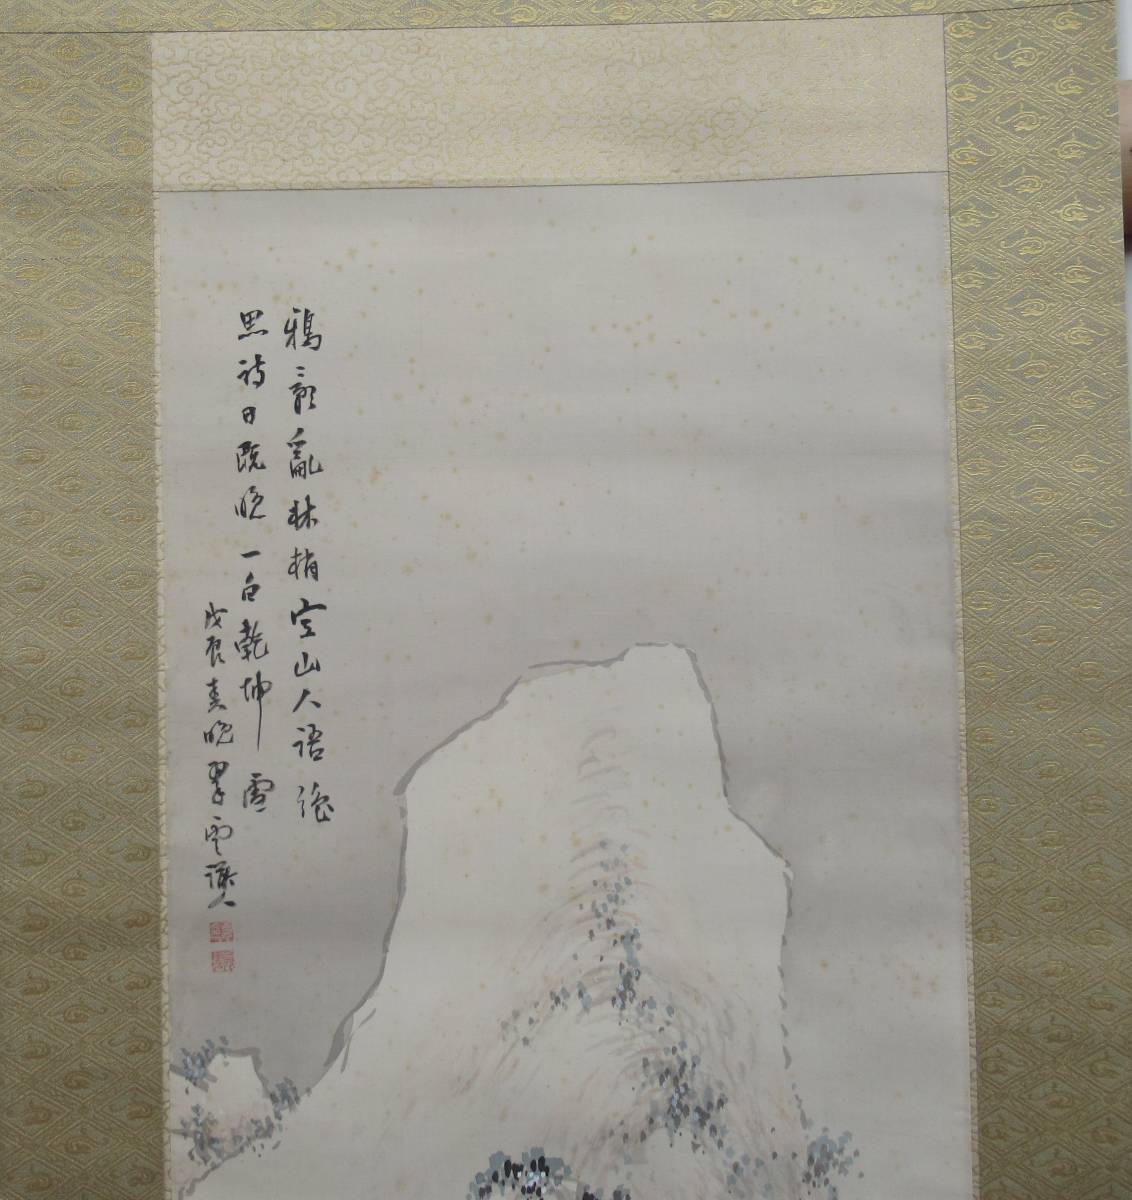 鴉影亂林梢空山人語絶
思詩日既晩一白乾坤雪
戊辰春晩翠雲人